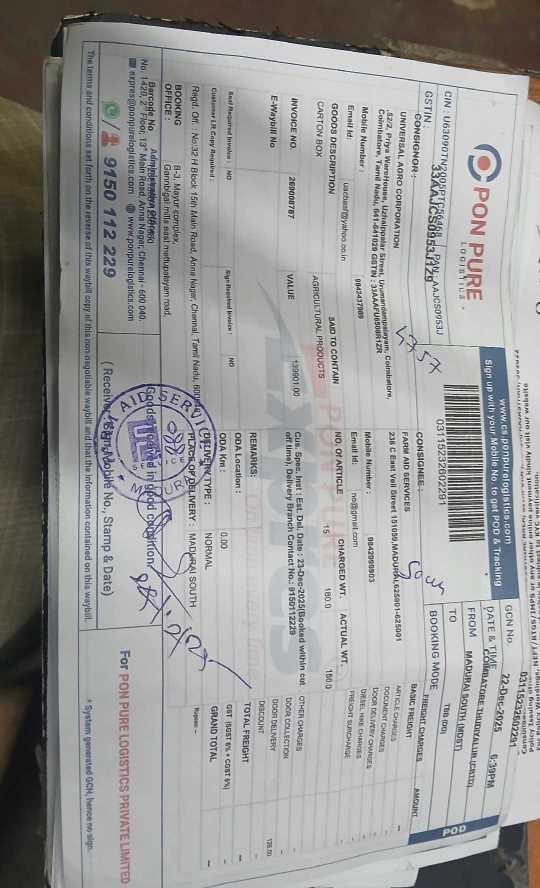 PON PURE
LOGISTICS
www.cs.ponpurelogistics.com
Sign up with your Mobile No. to get POD & Tracking
POD
CIN : U63090TN2005PTC56468 / PAN : AAJCS0953J
GSTIN : 33AAJCS0953J1Zg
03115232602291
GCN No. 03115232602291
DATE & TIME 22-Dec-2025 6:39PM
FROM COIMBATORE THUDIYALUR (CBTD)
TO MADURAI SOUTH (MDST)
BOOKING MODE TBB (BOI)
CONSIGNOR:
UNIVERSAL AGRO CORPORATION
Coimbatore, Tamil Nadu, 641-641029 GSTIN : 33AAAFU6508R1ZR
Mobile Number : 9843437989
Email Id: uacbasf@yahoo.co.in
4757
CONSIGNEE
FARM AID SERVICES
238 C East Veli Street 151059,MADURAI,625001-625001
Mobile Number : 9842999803
Email Id: no@gmail.com
GOODS DESCRIPTION SAID TO CONTAIN NO. OF ARTICLE CHARGED WT. ACTUAL WT.
CARTON BOX AGRICULTURAL PRODUCTS 15 180.0 180.0
INVOICE NO. 269008787 VALUE 139901.00
E-Waybill No
Cus. Spec. Inst : Est. Del. Date : 23-Dec-2025(Booked within cut
off time), Delivery Branch Contact No.: 9150112229
REMARKS:
Seal Required Invoice : NO Sign Required Invoice : NO
Customer LR Copy Required :
ODA Km : 0.00
ODA Location :
DELIVERY TYPE : NORMAL
PLACE OF DELIVERY : MADURAI SOUTH
FREIGHT CHARGES AMOUNT
BASIC FREIGHT
ARTICLE CHARGES
DOCUMENT CHARGES
DOOR DELIVERY CHARGES
DIESEL HIKE CHARGES
FREIGHT SURCHARGE
OTHER CHARGES
DOOR COLLECTION
DOOR DELIVERY
DISCOUNT
TOTAL FREIGHT
GST (SGST 6% + CGST 6%)
GRAND TOTAL
Rupees :-
Regd. Off. : No:32 H Block 15th Main Road, Anna Nagar, Chennai, Tamil Nadu,
BOOKING OFFICE : B-3, Mayur complex,
mettupalayam road,
Administration Office:
No. 1420, 2nd Floor, 13th Main Road, Anna Nagar, Chennai - 600 040.
expres@ponpurelogistics.com www.ponpurelogistics.com
9150 112 229
Goods received in good condition
AID SERVICE
MADURAI
(Receiver Sign, Mobile No., Stamp & Date)
For PON PURE LOGISTICS PRIVATE LIMITED
The terms and conditions set forth on the reverse of this waybill copy of this non-negotiable waybill and that the information contained on this waybill.
* System generated GCN, hence no sign.